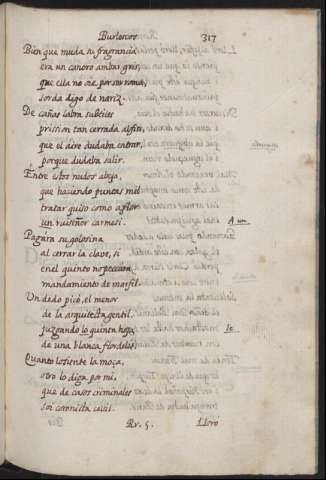 Burlescos
317
Bien que muda su fragrancia
era un canoro ambar gris,
que ella no oie por ser rosa,
sorda digo de nariz.
De cañas labra subtiles
prission tan cerrada al fin,
que el aire dudaba entrar,
porque dudaba salir.
Entre estos nudos abeja,
que haciendo puntas mil
tratar quiso como a flor
un ruiseñor carmesi.
A un
Pagara su golosina
al cerrar la clave, si
en el quinto no peccara
mandamiento de marfil.
Un dedo picó el menor
de la arquitecta gentil,
juzgando lo quinta hoja
de una blanca flordelis
le
Quanto lo siente la moça,
otro lo diga por mi,
que de casos criminales
soi coronista ciuil.
Rr. 5.
Lloro